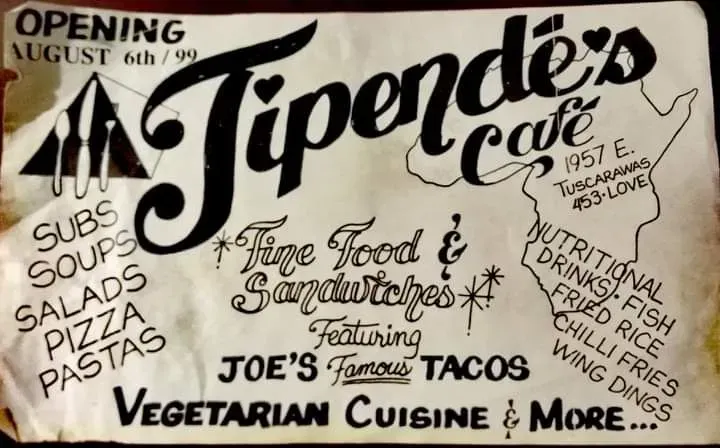 OPENING
AUGUST 6th / 99
Tipendé's
Café
1957 E.
TUSCARAWAS
453·LOVE
SUBS
SOUPS
SALADS
PIZZA
PASTAS
Fine Food &
Sandwiches
Featuring
JOE'S Famous TACOS
VEGETARIAN CUISINE & MORE...
NUTRITIONAL
DRINKS · FISH
FRIED RICE
CHILLI FRIES
WING DINGS